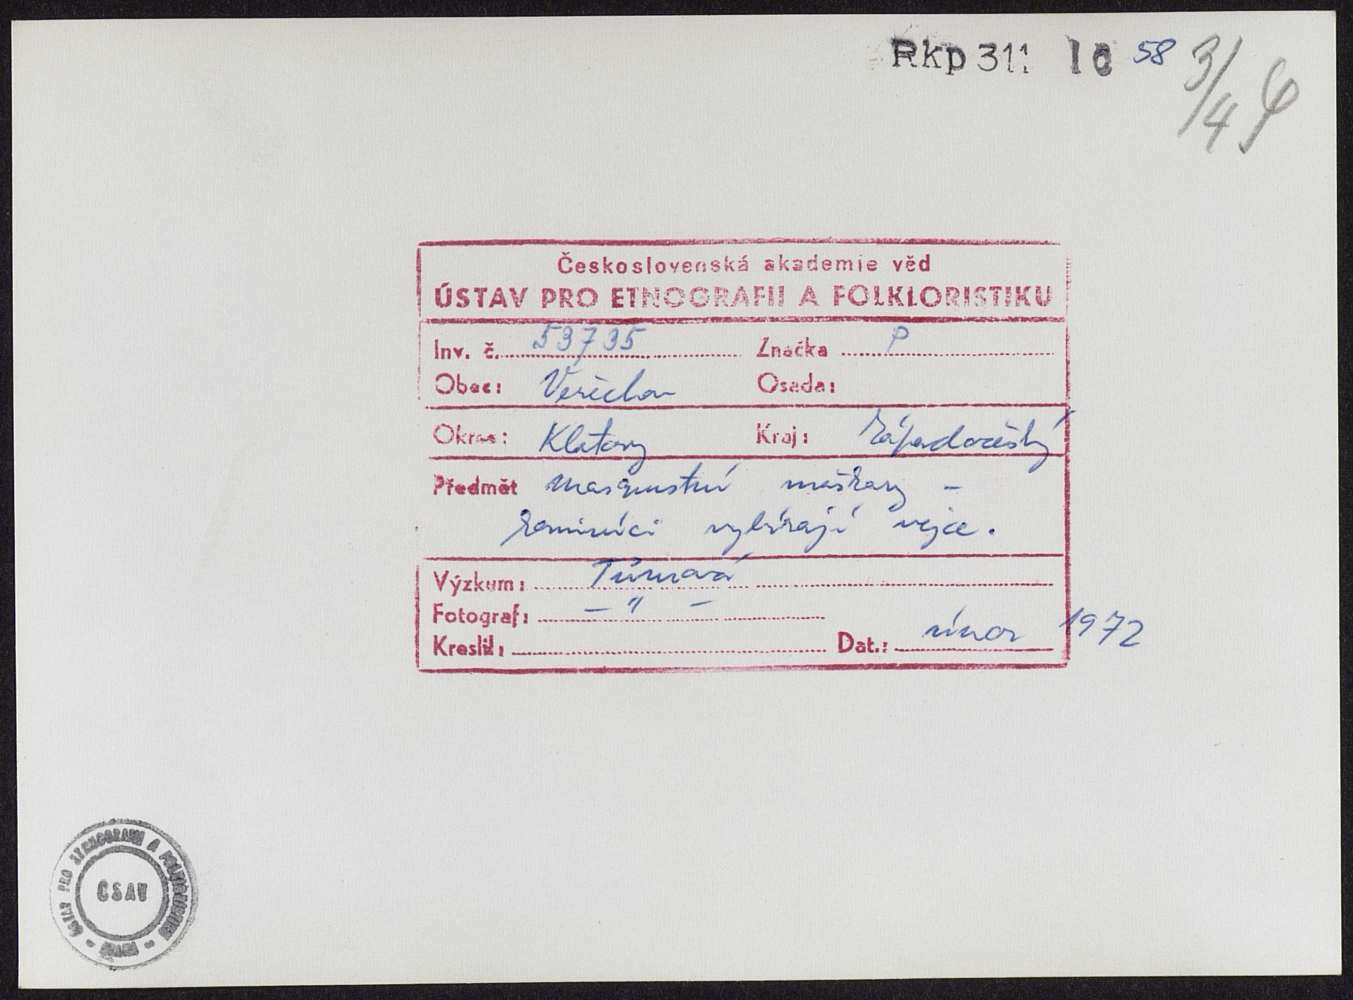 Rkp 311 10 58 3/4
Československá akademie věd
ÚSTAV PRO ETNOGRAFII A FOLKLORISTIKU
Inv. č. 53735 Značka P
Obec: Osada:
Okres: Klatovy Kraj: Západočeský
Předmět masopustní maškary –
kominíci vybírají vejce.
Výzkum: Tůmová
Fotograf: – " –
Kreslil: Dat.: únor 1972
ÚSTAV PRO ETNOGRAFII A FOLKLORISTIKU – PRAHA –
ČSAV